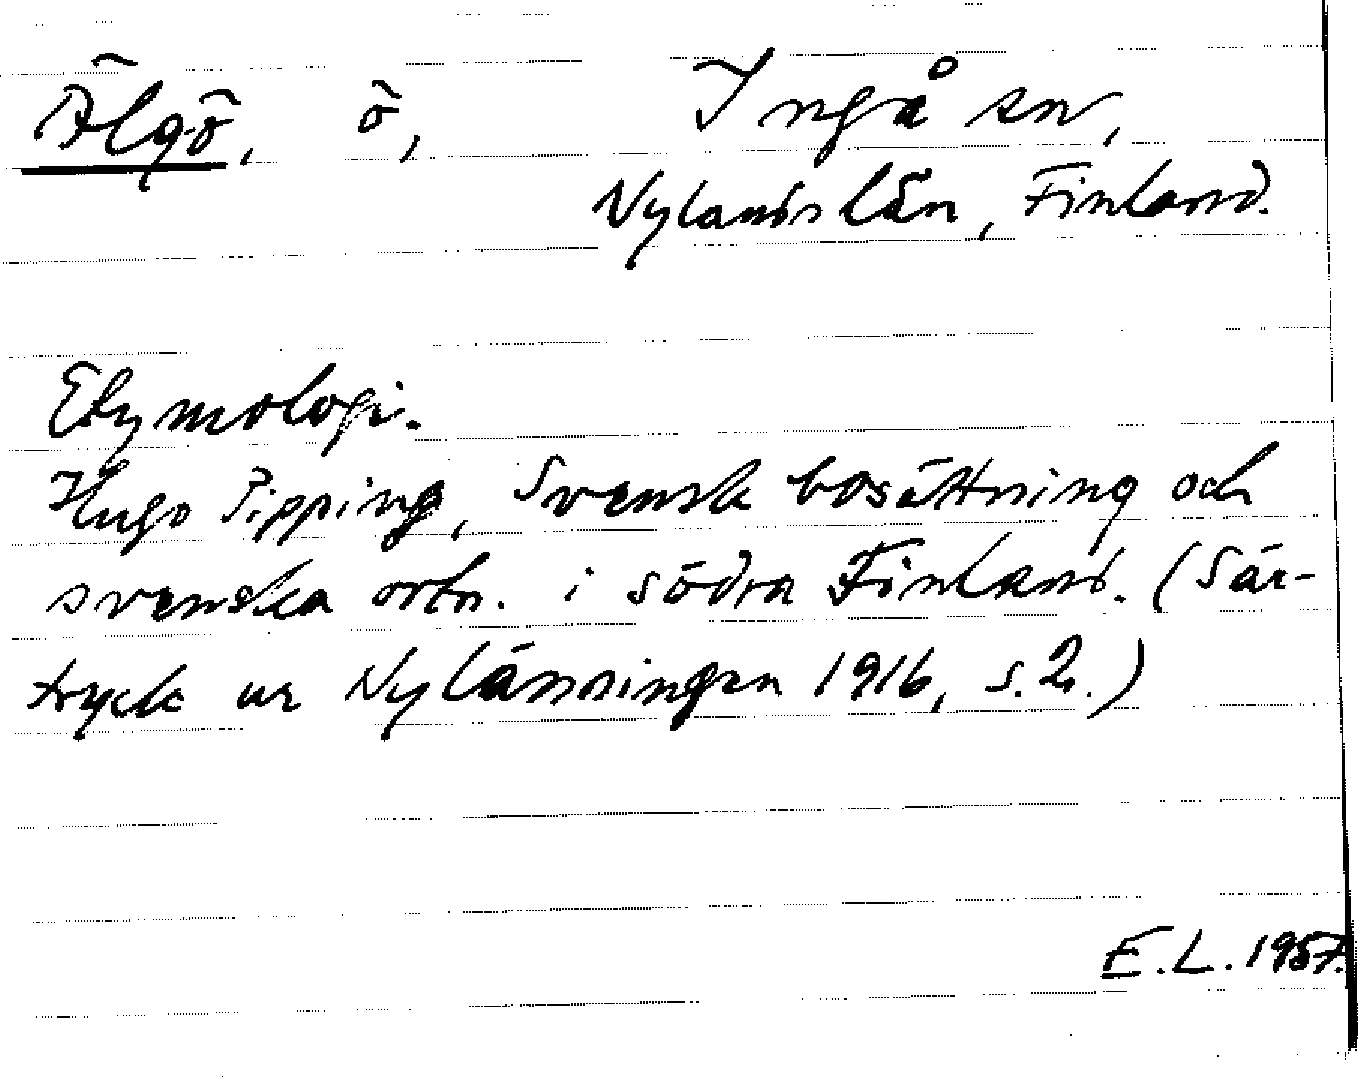 Älgö, ö, Ingå sn,
Nylands län, Finland.
Etymologi.
Hugo Pipping, Svensk bosättning och
svenska ortn. i södra Finland. (Sär-
tryck ur Nylänningen 1916, s. 2.)
E.L. 1957.